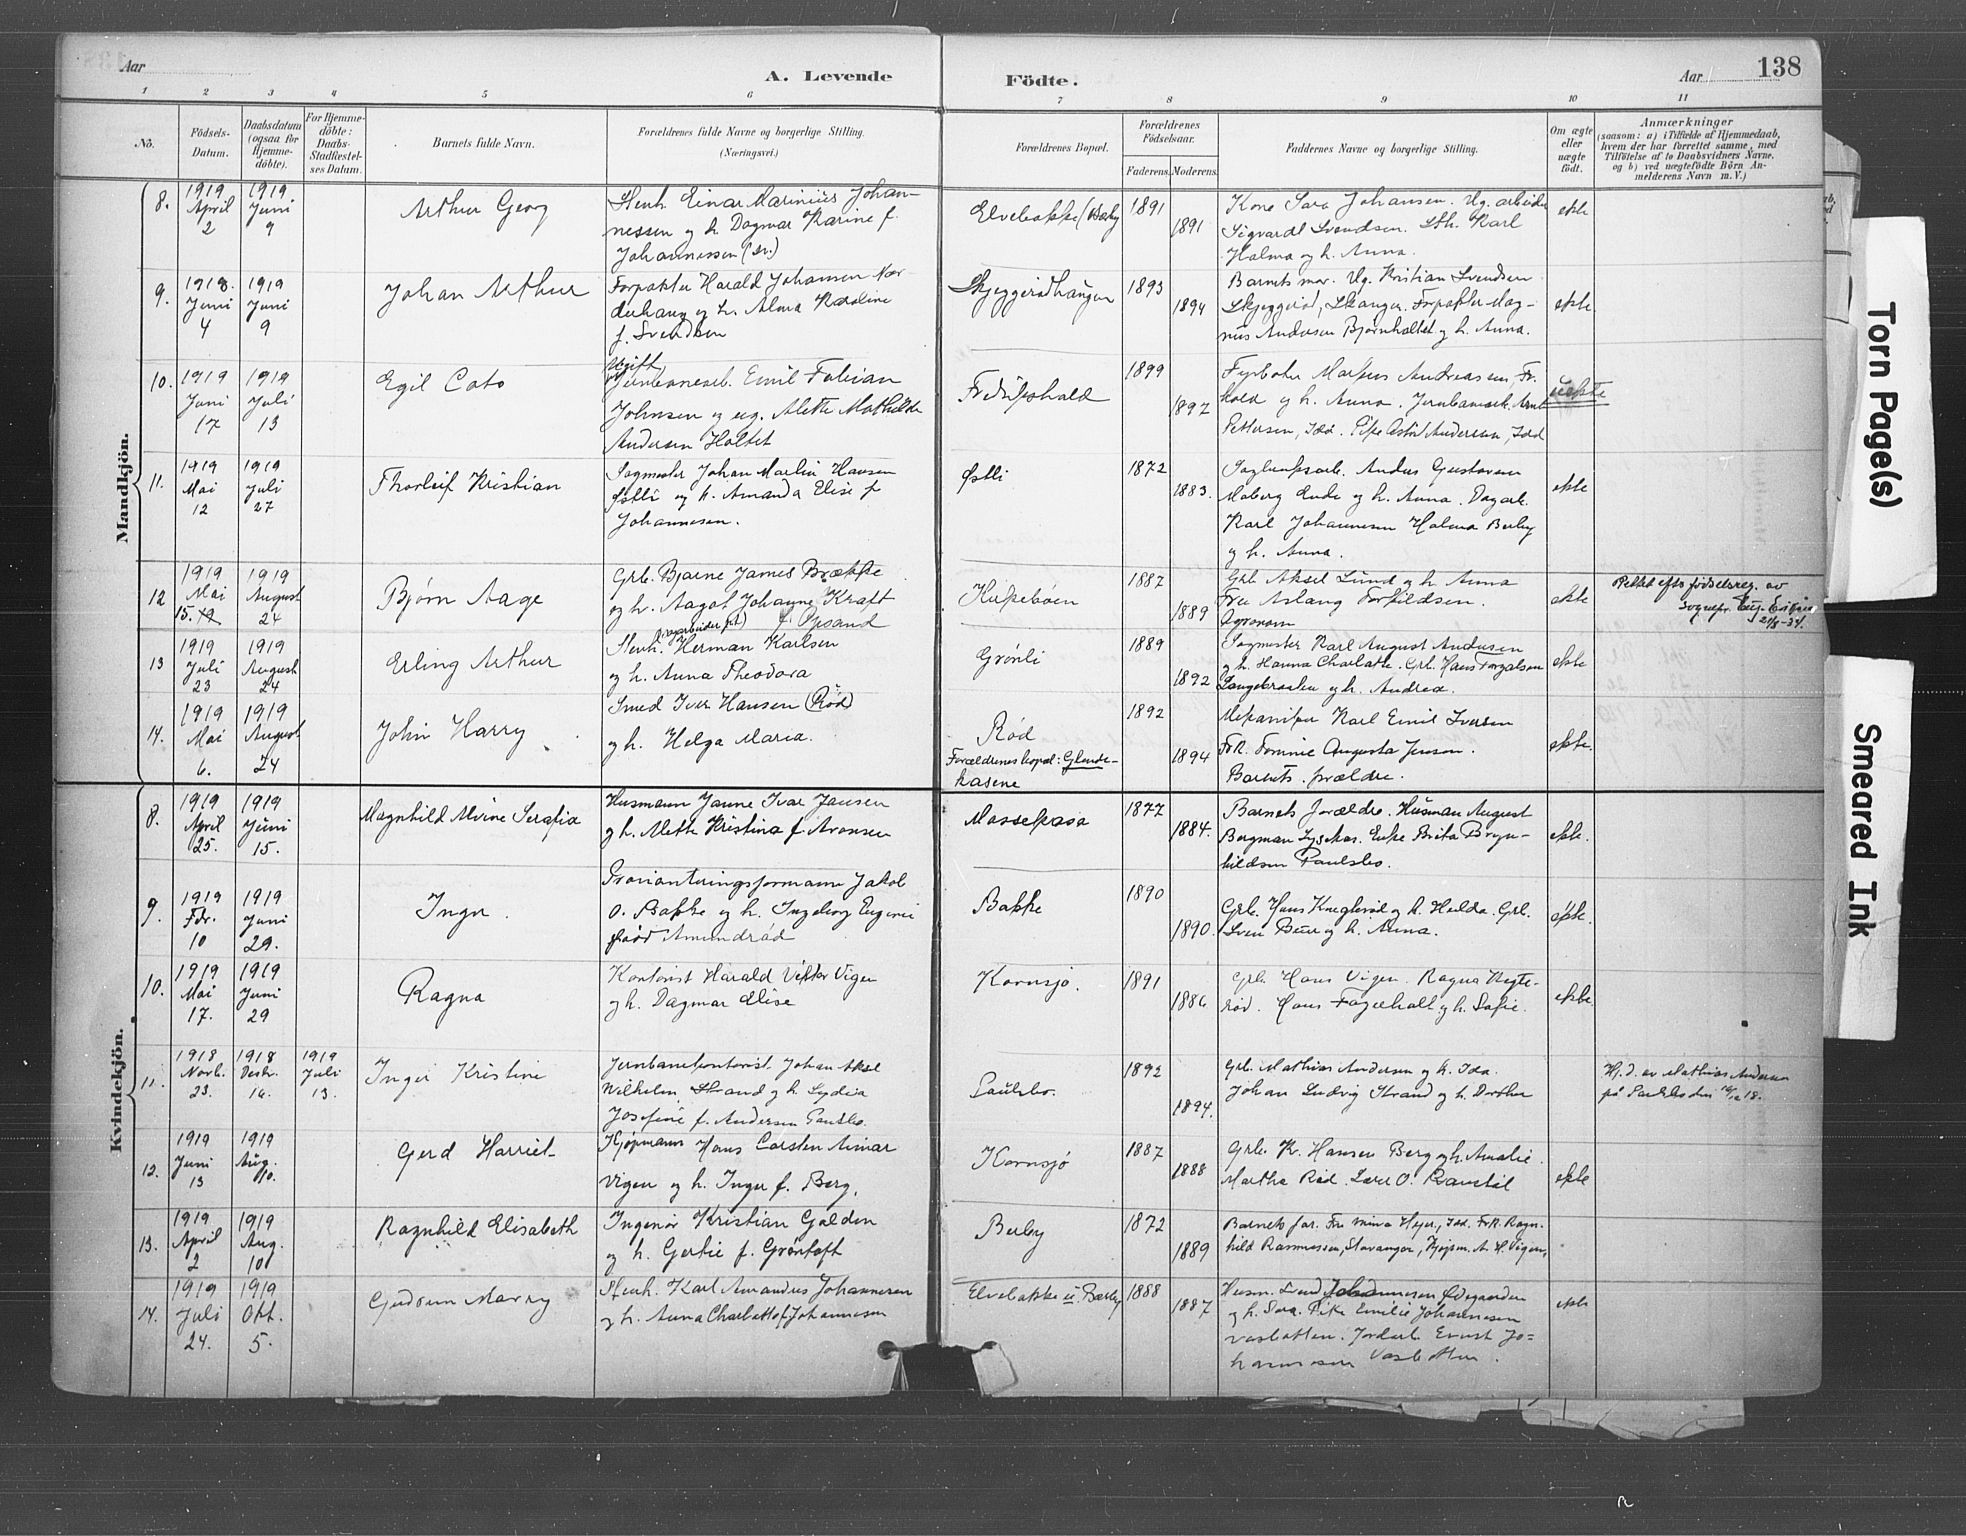 Aar
A. Levende Födte.
Aar
138
1 2 3 4 5 6 7 8 9 10 11
No.
Födsels-
Datum.
Daabsdatum
(ogsaa for
Hjemme-
döbte).
For Hjemme-
döbte:
Daabs-
Stadfestel-
ses Datum.
Barnets fulde Navn.
Forældrenes fulde Navne og borgerlige Stilling.
(Næringsvei.)
Forældrenes Bopæl.
Forældrenes
Födselsaar.
Faderens. Moderens.
Faddernes Navne og borgerlige Stilling.
Om ægte
eller
uægte
födt.
Anmærkninger
(saasom: a) i Tilfælde af Hjemmedaab,
hvem der har forrettet samme, med
Tilföielse af to Daabsvidners Navne,
og b) ved uægtefödte Börn An-
melderens Navn m. V.)
Mandkjön.
8.
1919
April
2
1919
Juni
9
Arthur Georg
Stenh. Einar Marinius Johan-
nessen og h. Dagmar Karine f.
Johannessen
Elvebakke (Berby
1891
1891
Kone Sara Johansen. Ug. arbeider
Sigvardt Svendsen. Sth. Karl
Holma og h. Anna.
ekte
9.
1918.
Juni
4
1919
Juni
9
Johan Arthur
Forpakter Harald Johansen
og h. Alma Karoline
f. Svendsen
Skjeggerødhaugen
1893
1894
Barnets mor. Ug. Kristian Svendsen
Skjeggerød, Forpakter Mag-
nus Andersen Bjørnholtet og h. Anna.
ekte.
10.
1919
Juni
17
1919
Juli
13
Egil Cato
Ugift
Jernbanearb. Emil Fabian
Johnsen og ug. Alette Mathilde
Andersen Holtet
Fredrikshald
1899
1897
Fyrbøter Markus Andreassen, Fr.
hald og h. Anna. Jernbanearb. Arnt
Pettersen, Idd. Pike Astrid Andersen, Idd
uekte
11.
1919
Mai
12
1919
Juli
27
Thorleif Kristian
Sagmester Johan Martin Hansen
Østli og h. Amanda Elise f
Johannesen.
Østli
1872
1883.
Anders Gustavsen
Moberg og h. Anna. Dagarb.
Karl Johannesen Holma Berby
og h. Anna.
ekte
12
1919
Mai
15. 19
1919
August
24
Bjørn Aage
Grb. Bjarne James Brække
og h. Aagot Johanne Kraft
f. Opsand
1887
1889
Grb. Aksel Lund og h. Anna
Fru Aslaug Torkildsen.
Agronom
ekte
Rettet efter fødselsreg. av
sognepr.
21/8-34.
13
1919
Juli
23
1919
August
24
Erling Arthur
Stenh. Herman Karlsen
og h. Anna Theodora
Grønli
1889
1892
Sagmester Karl August Andersen
og h. Hanna Charlotte. Grb. Hans Torgalsen
Langebraaten og h. Andrea.
ekte
14.
1919
Mai
6.
1919
August
24
John Harry
Smed Iver Hansen (Rød)
og h. Helga Maria.
Rød
Forældrenes bopæl: Glende-
kasene
1892
1894
Mekaniker Karl Emil Iversen
Frk. Tomine Augusta Jensen.
Barnets forældre.
ekte.
Kvindekjön.
8.
1919
April
25.
1919
Juni
15.
Magnhild Alvine Serafia
Husmann Janne Ivar Jansen
og h. Alette Kristina f Aronsen
Mossekasa
1877
1884.
Barnets forældre. Husman August
Bergman Enke Brita Bryn-
hildsen Paulsbo.
ekte.
9.
1919
Fbr.
10
1919
Juni
29.
Inga.
Provianteringsformann Jakob
O. Bakke og h. Ingeborg Eugenie
født Amundrød
Bakke
1890
1890.
Grb. Hans Kneglerød og h. Hulda. Grb.
Sven Buer og h. Anna.
ekte.
10.
1919
Mai
17.
1919
Juni
29
Ragna
Kontorist Harald Viktor Vigen
og h. Dagmar Elise
Kornsjø.
1891
1886
Grb. Hans Vigen. Ragna Vegte-
rød. Hans Fagerholt og h. Sofie.
ekte.
11.
1918
Novb.
23.
1918
Desbr.
16.
1919
Juli
13.
Inger Kristine
Jernbanekontorist Johan Aksel
Wilhelm Strand og h. Lydia
Josefine f. Andersen Paulsbo.
Paulsbo.
1892
1894.
Grb. Mathias Andersen og h. Ida.
Johan Ludvig Strand og h. Dorthea
Hj. d. av Mathias Andersen
på Paulsbo den 16/12 18.
12.
1919
Juni
13
1919
Aug.
10.
Gerd Harriet
Kjøpmann Hans Carsten Aimar
Vigen og h. Inger f. Berg.
Kornsjø
1887
1888
Grb. K. Hansen Berg og h. Amalie.
Martha Rød. Lærer O. Ramstøl
ekte
13.
1919
April
2
1919
Aug.
10
Ragnhild Elisabeth
Ingeniør Kristian Golden
og h. Gertie f. Grøntoft
Berby
1872
1889
Barnets far. Fru Mina Hejer, Idd. Frk. Ragn-
hild Rasmussen, Stavanger, Kjøpm. A. H. Vigen,
14.
1919
Juli
24.
1919
Okt.
5.
Gudrun Marry
Stenh. Karl Amandus Johannesen
og h. Anna Charlotte f. Johannesen
Elvebakke u. Berby
1888
1887
Husm. Svend Johannesen Ødegaarden
og h. Sara. Pike Emilie Johannesen
Vasbotten. Jordarb. Ernst Jo=
hannessen Vasbotten.
ekte
Torn Page(s)
Smeared Ink